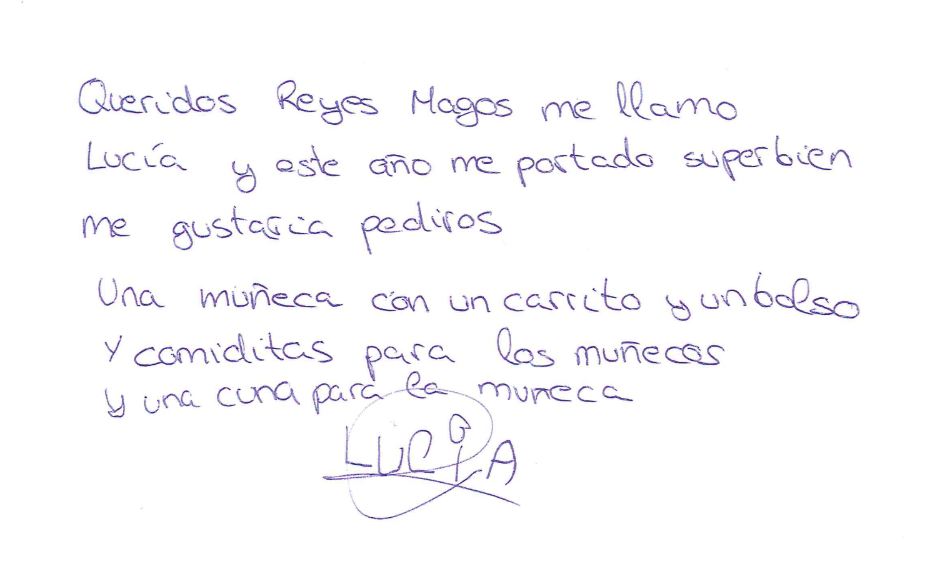 Queridos Reyes Magos me llamo
Lucía y este año me portado superbien
me gustaria pediros
Una muñeca con un carrito y un bolso
Y comiditas para los muñecos
y una cuna para la muneca
LUCIA